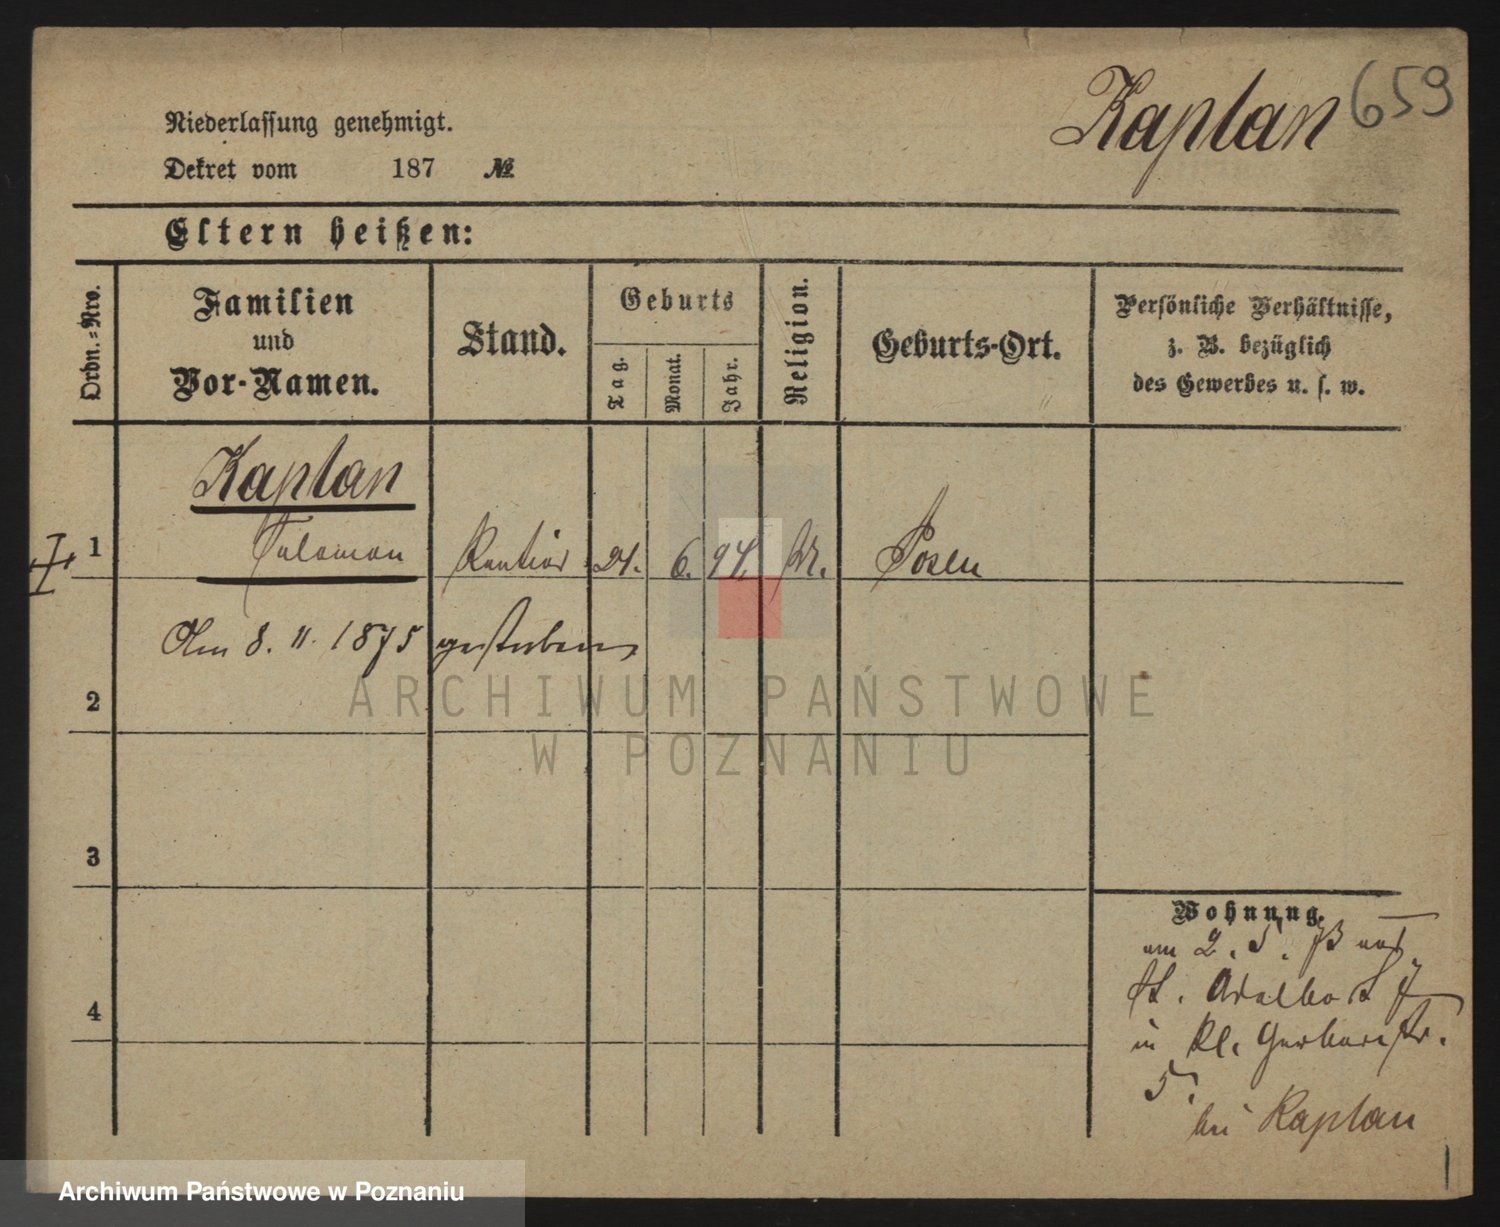 Kaplan 659
Niederlassung genehmigt.
Dekret vom 187 №
Eltern heißen:
Ordn.-Nro.
Familien
und
Vor-Namen.
Stand.
Geburts
Tag.
Monat.
Jahr.
Religion.
Geburts-Ort.
Persönliche Verhältnisse,
z. B. bezüglich
des Gewerbes u. s. w.
Kaplan
1 Salomon Rentier 24. 6. 94. M. Posen
Am 8. 11. 1875 gestorben
2
3
4
Wohnung.
am 2. 5. 73 aus
St. Adalbert 7
in Kl. Gerberstr.
5.
bei Kaplan
ARCHIWUM PAŃSTWOWE
W POZNANIU
Archiwum Państwowe w Poznaniu